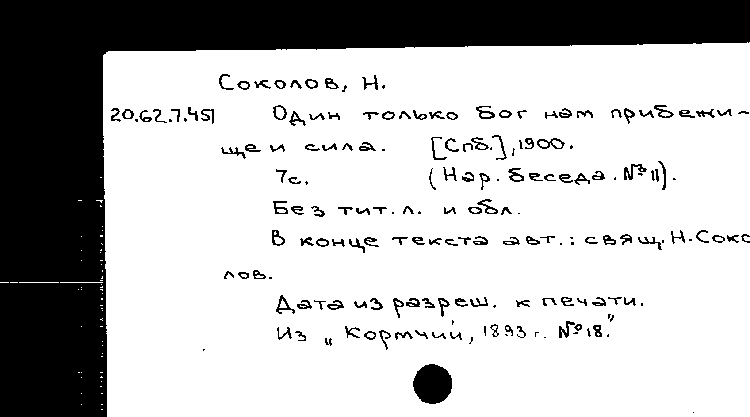 Соколов, Н.
20.62.7.451 Один только бог нам прибежи-
ще и сила. [Спб.], 1900.
7с. (Нар. беседа. №11).
Без тит. л. и обл.
В конце текста авт.: свящ. Н. Соко
лов.
Дата из разреш. к печати.
Из „Кормчий, 1893 г. №18."